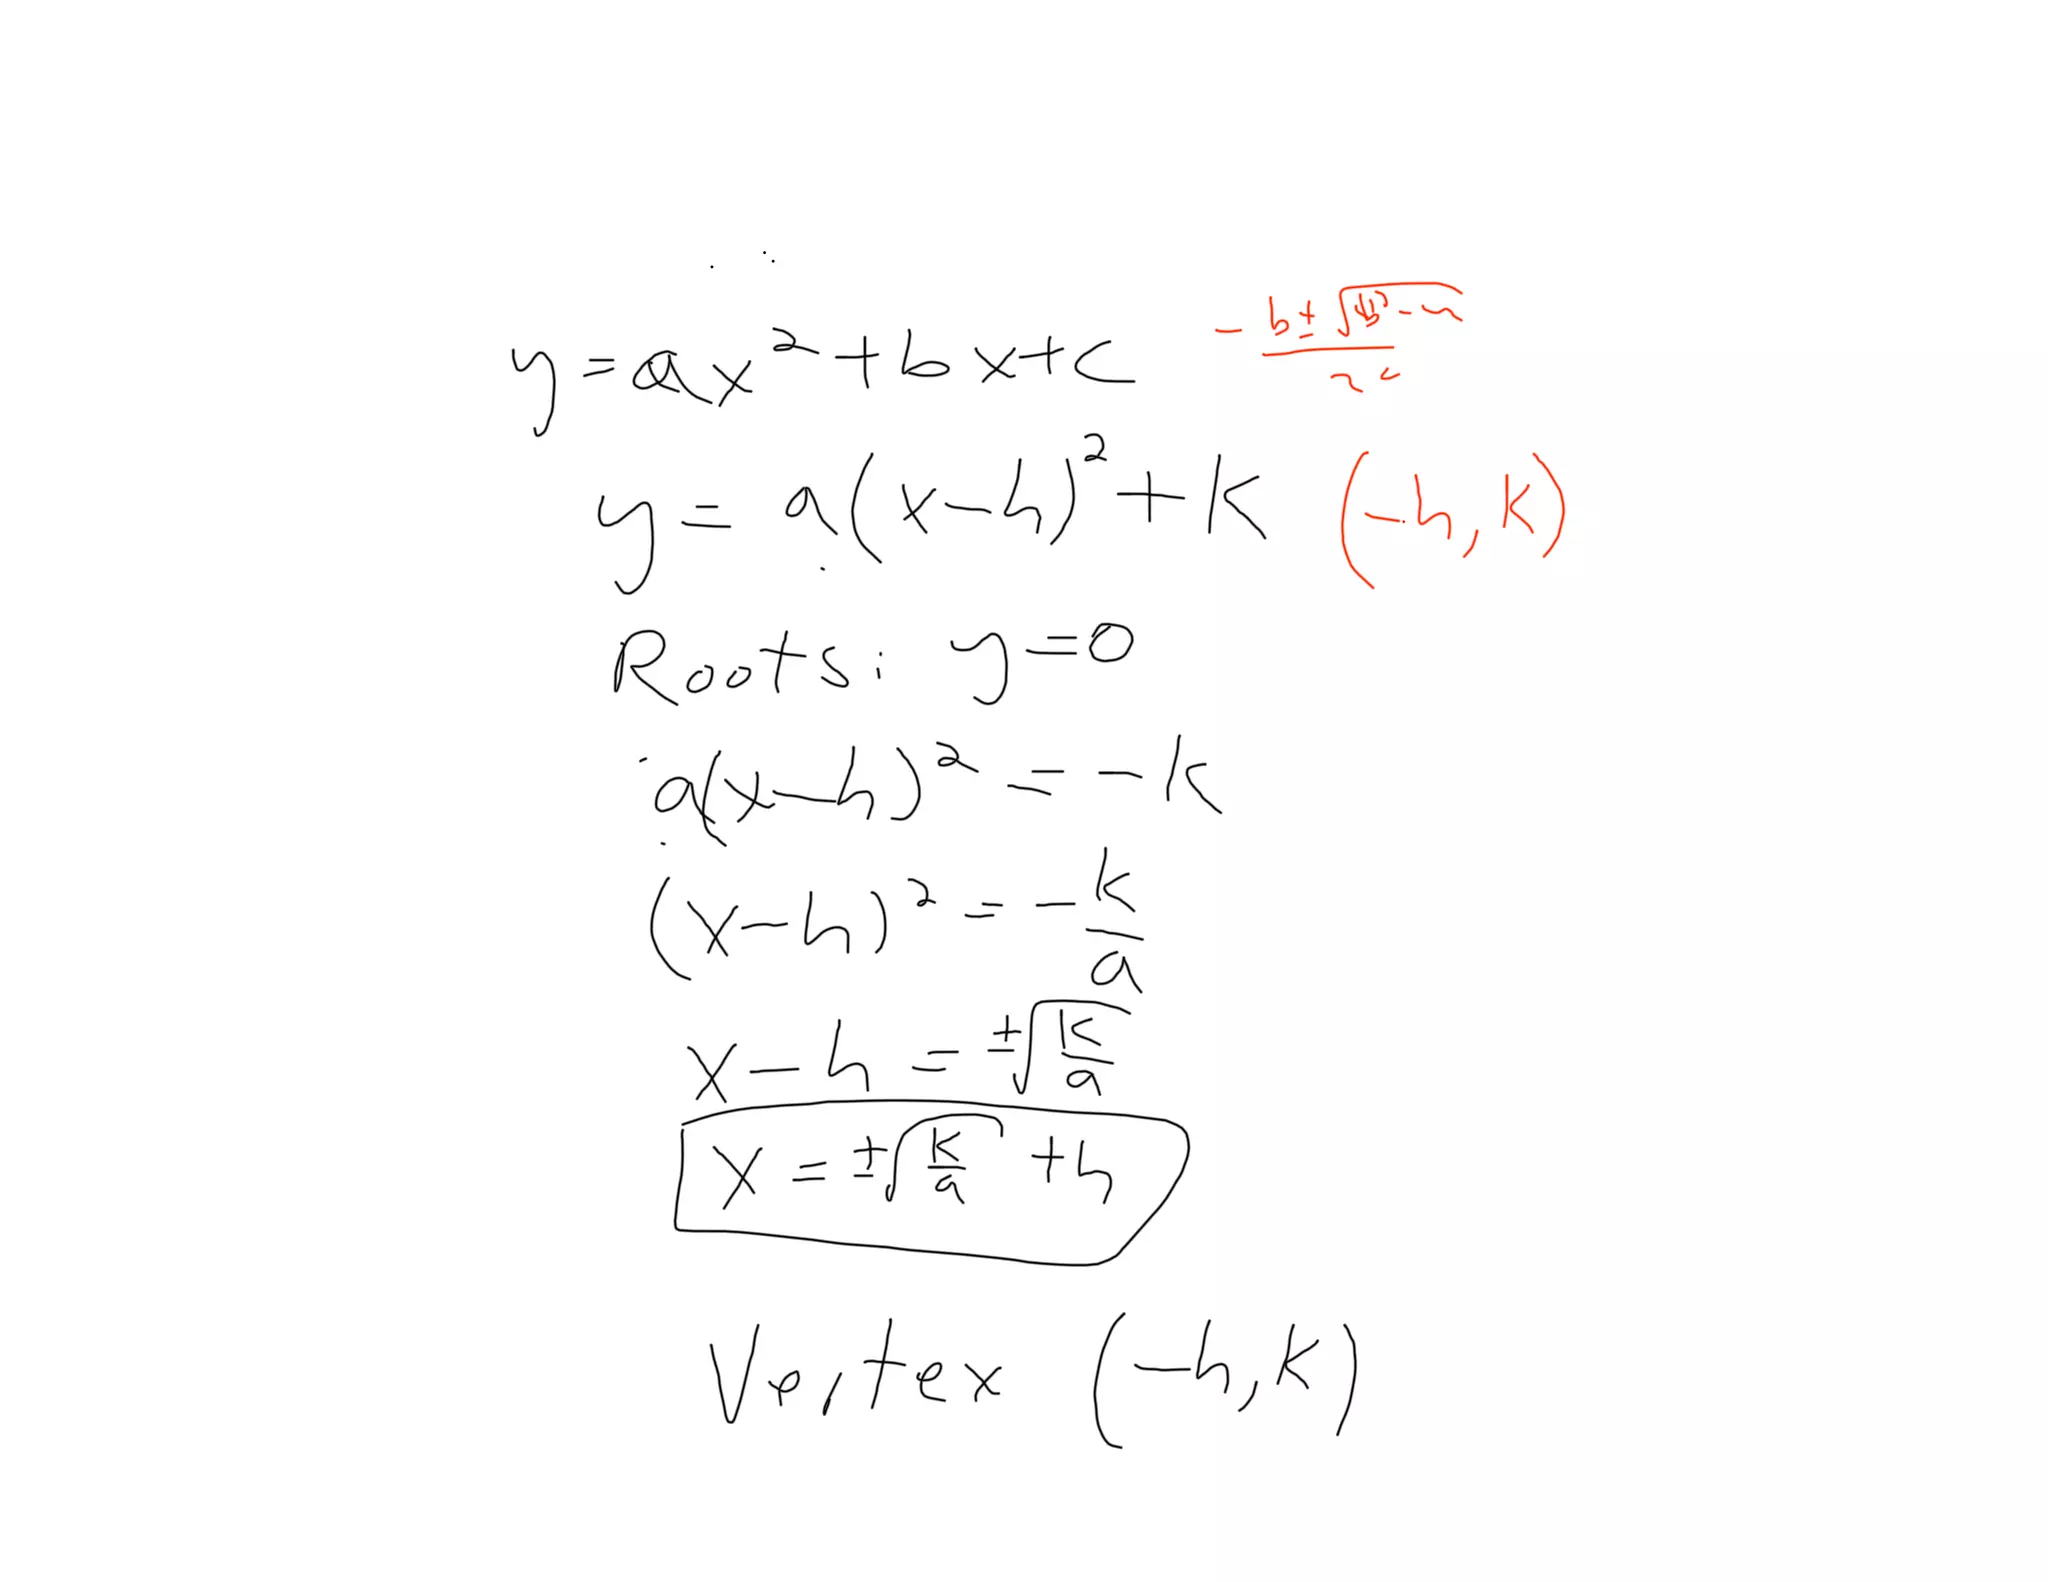 y = ax² + bx + c
-b ± √b² - 
2a
y = a(x-h)² + k (-h, k)
Roots: y = 0
a(x-h)² = -k
(x-h)² = -k/a
x - h = ±√k/a
x = ±√k/a + h
Vertex (-h, k)